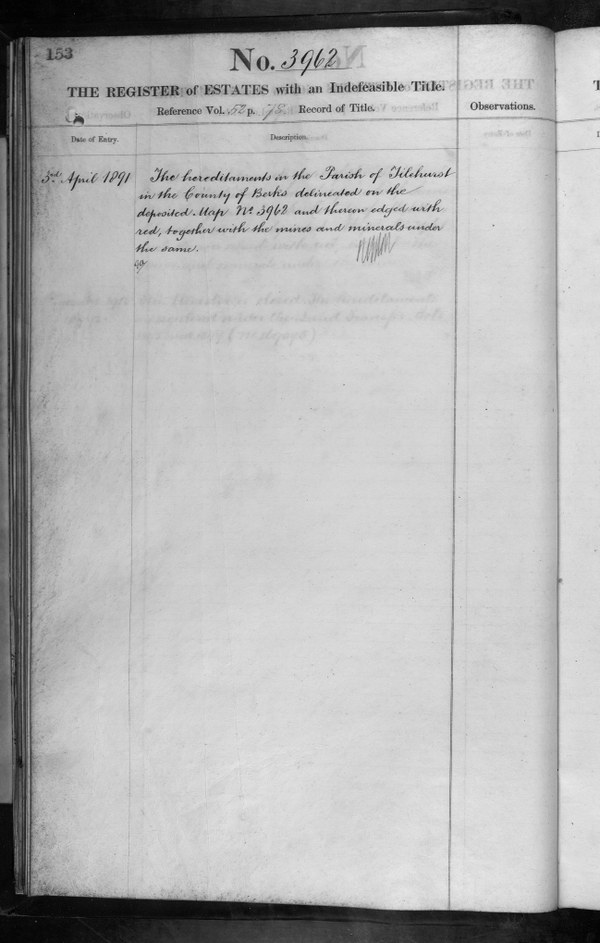 153
No. 3962
THE REGISTER of ESTATES with an Indefeasible Title.
Reference Vol. 52 p. Record of Title.
Observations.
Date of Entry.
Description.
3rd April 1891
The hereditaments in the Parish of Tilehurst
in the County of Berks delineated on the
deposited Map No. 3962 and thereon edged with
red, together with the mines and minerals under
the same.